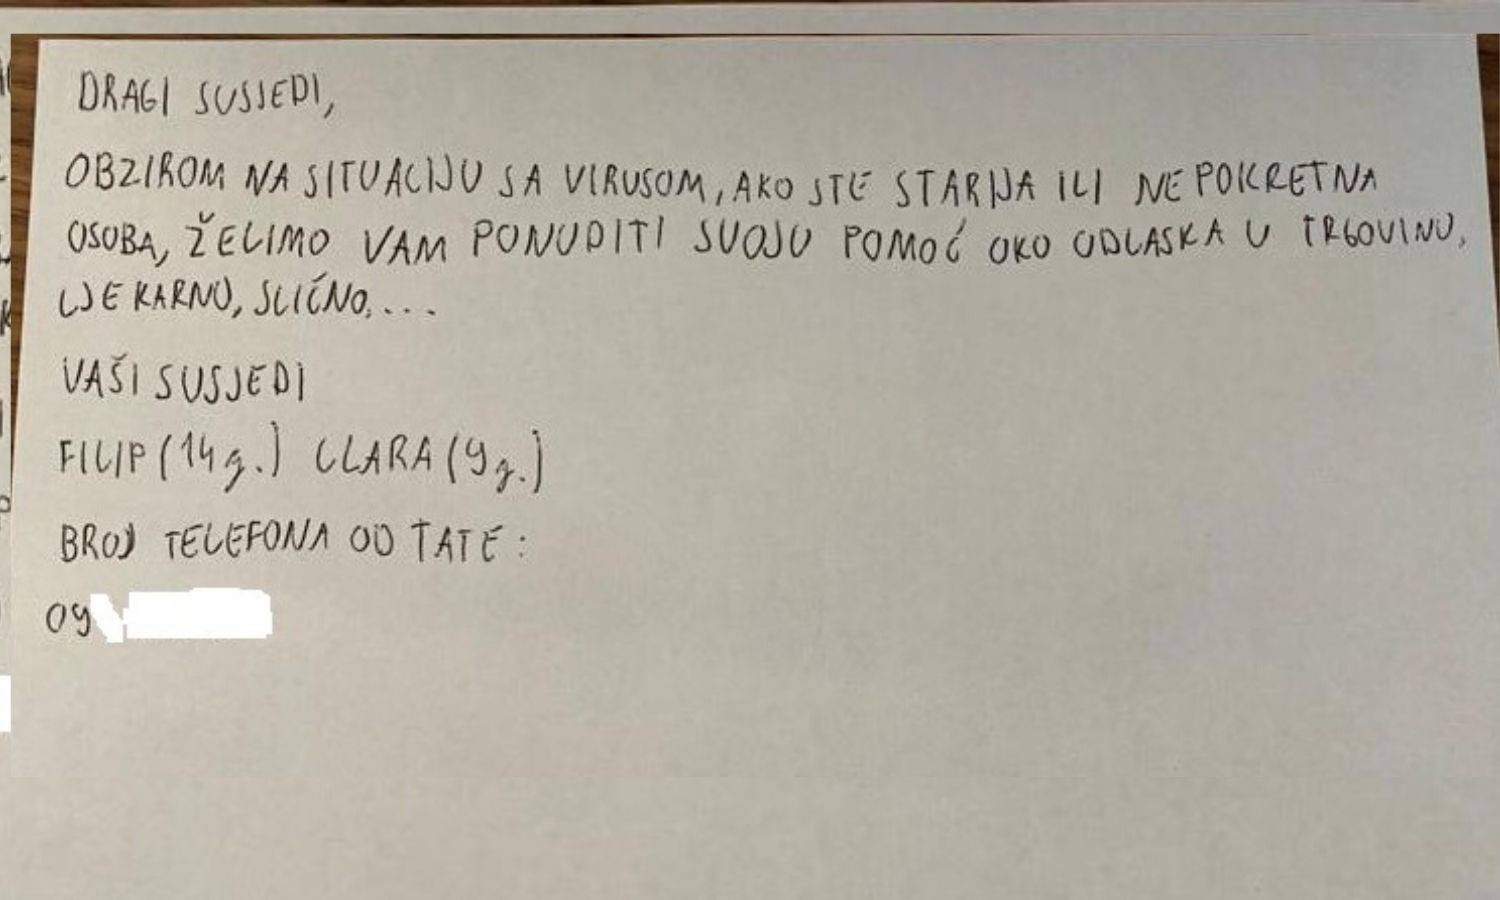 DRAGI SUSJEDI,
OBZIROM NA SITUACIJU SA VIRUSOM, AKO STE STARIJA ILI NEPOKRETNA
OSOBA, ŽELIMO VAM PONUDITI SVOJU POMOĆ OKO ODLASKA U TRGOVINU,
LJEKARNU, SLIČNO,...
VAŠI SUSJEDI
FILIP (14 g.) CLARA (9 g.)
BROJ TELEFONA OD TATE:
09